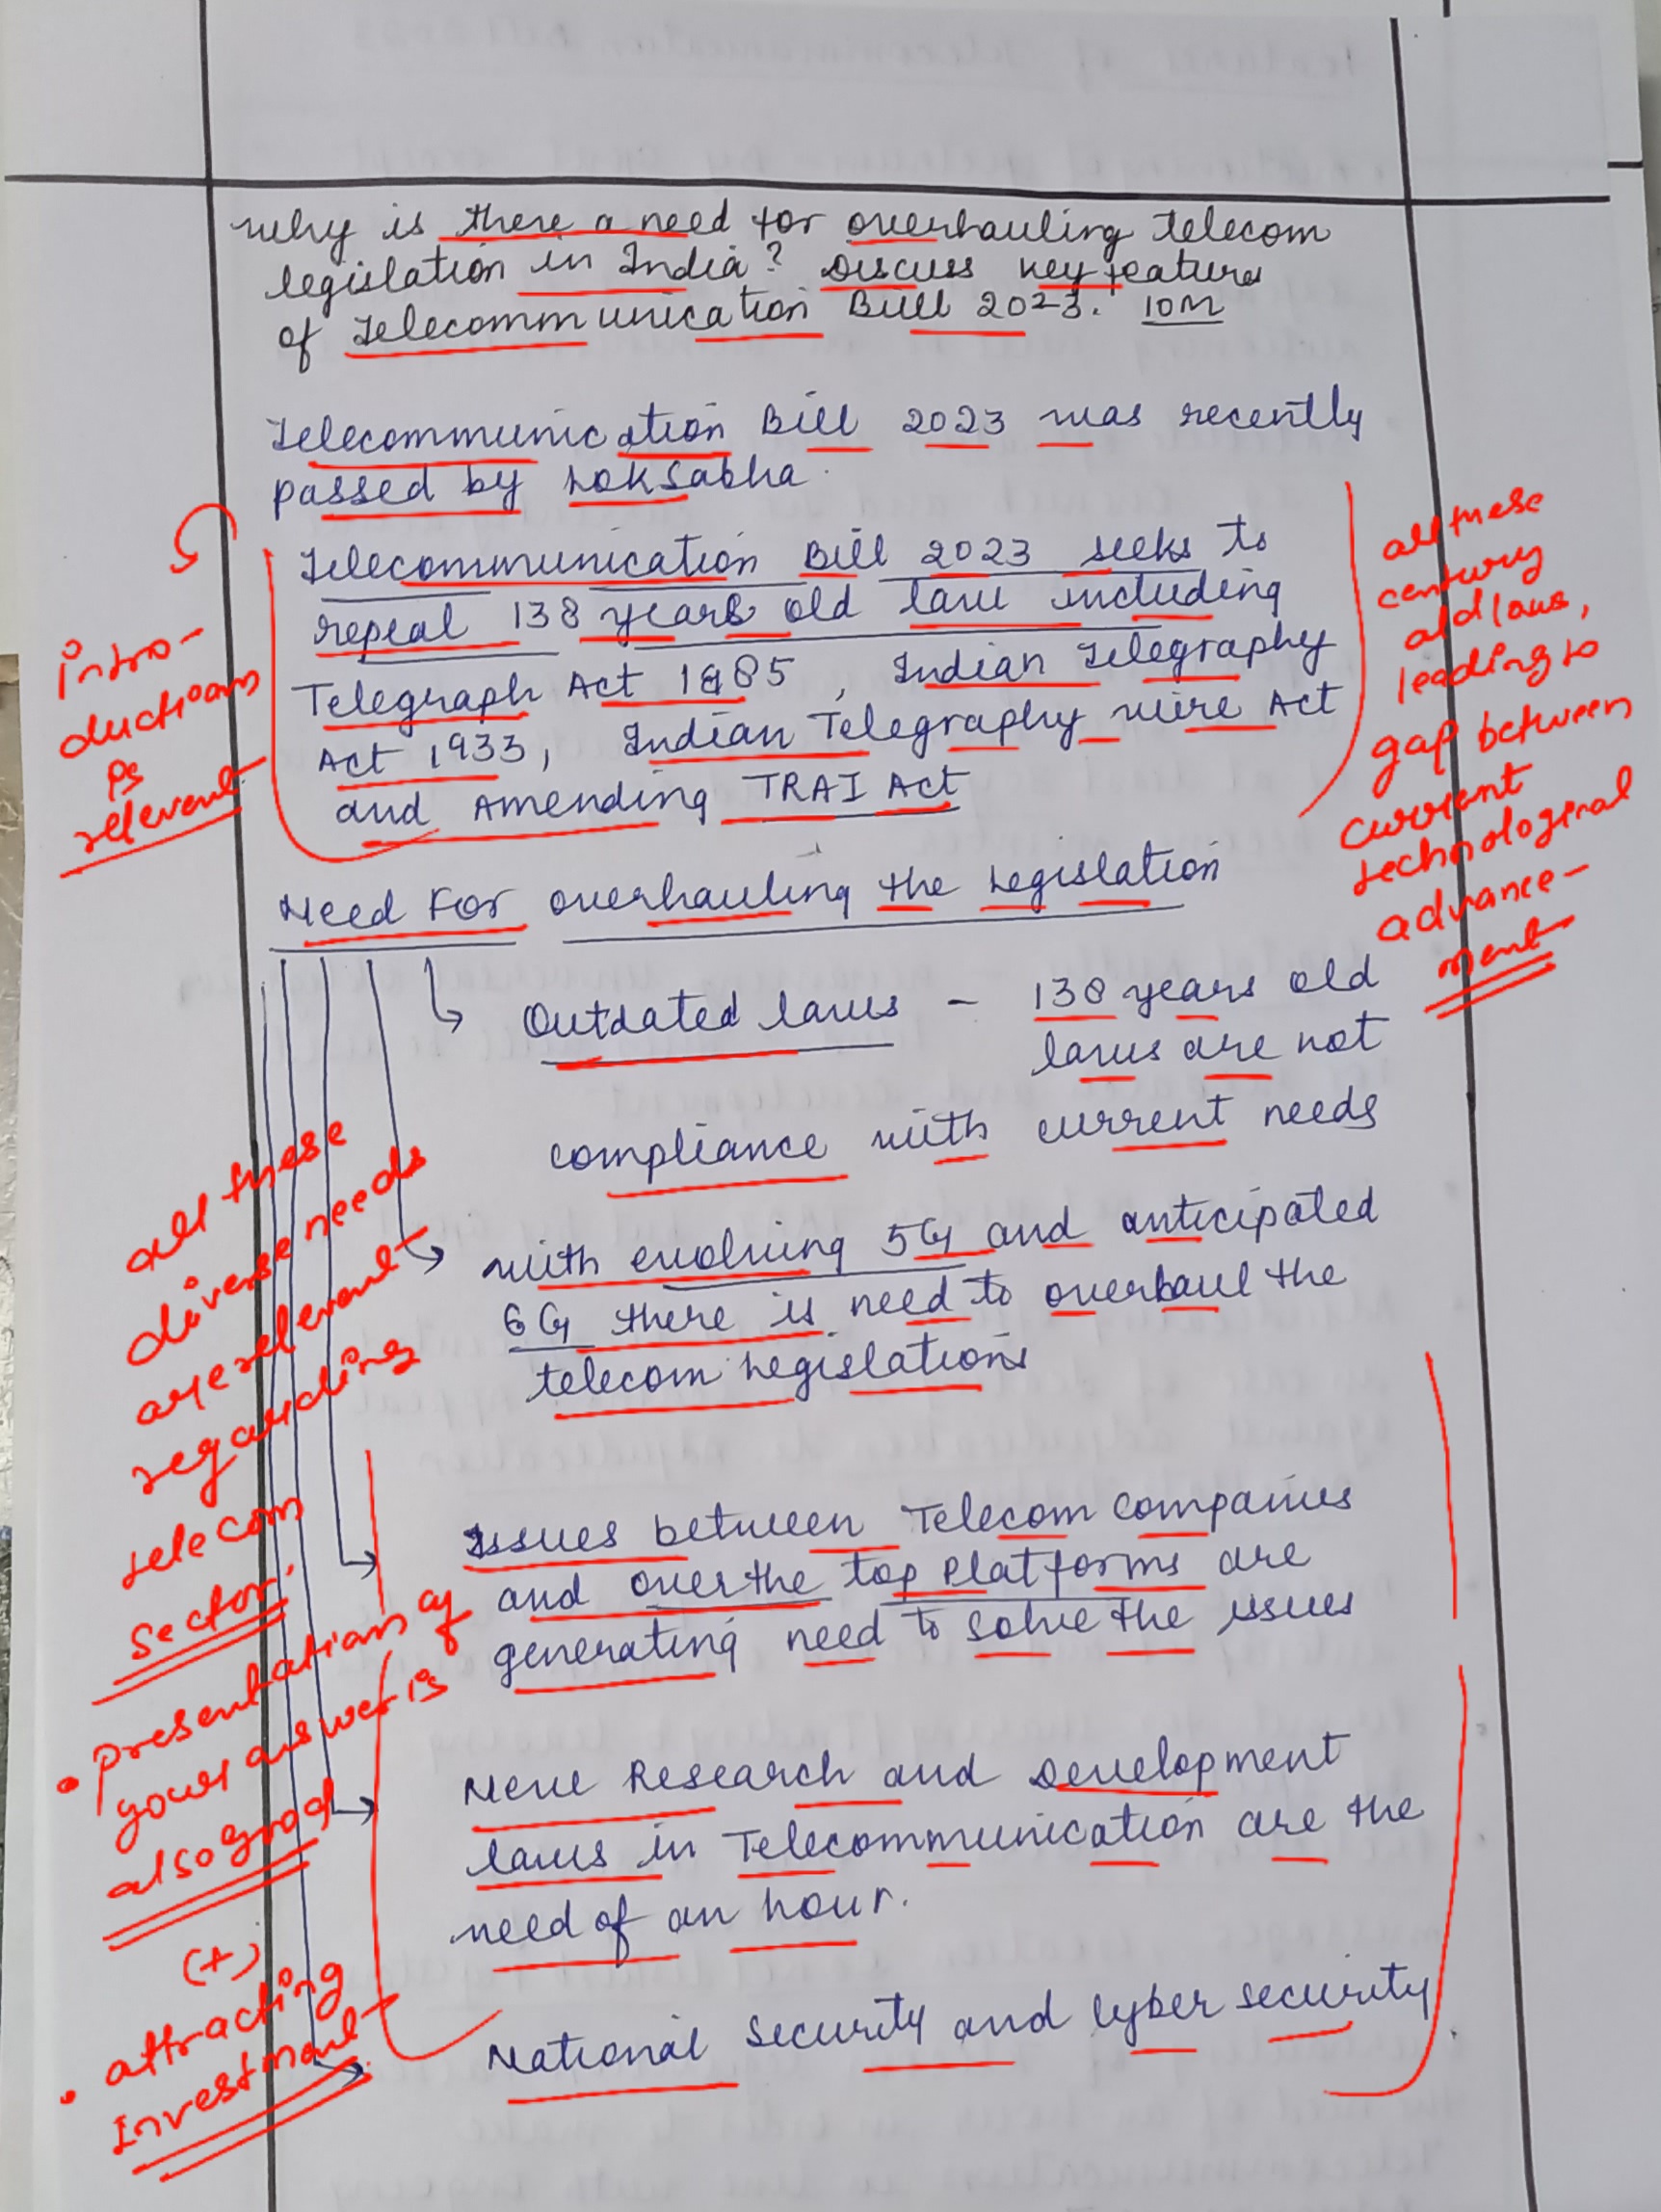 Why is there a need for overhauling telecom
legislation in India? Discuss key feature
of Telecommunication Bill 2023. 10M
Telecommunication Bill 2023 was recently
passed by Loksabha.
Telecommunication Bill 2023 seeks to
repeal 138 years old law including
Telegraph Act 1885, Indian Telegraphy
Act 1933, Indian Telegraphy wire Act
and Amending TRAI Act
intro-
ductions
is
relevent
all these
century
old laws,
leading to
gap between
current
technological
advance-
ment
Need For overhauling the Legislation
Outdated laws - 138 years old
laws are not
compliance with current needs
with evolving 5G and anticipated
6G there is need to overhaul the
telecom Legislations
all these
diverse needs
are relevant
regarding
telecom
sector.
Issues between Telecom companies
and over the top Platforms are
generating need to solve the issues
• presentation of
your answer is
also good
New Research and Development
laws in Telecommunication are the
need of an hour.
(+)
• attracting
Investment
National security and cyber security